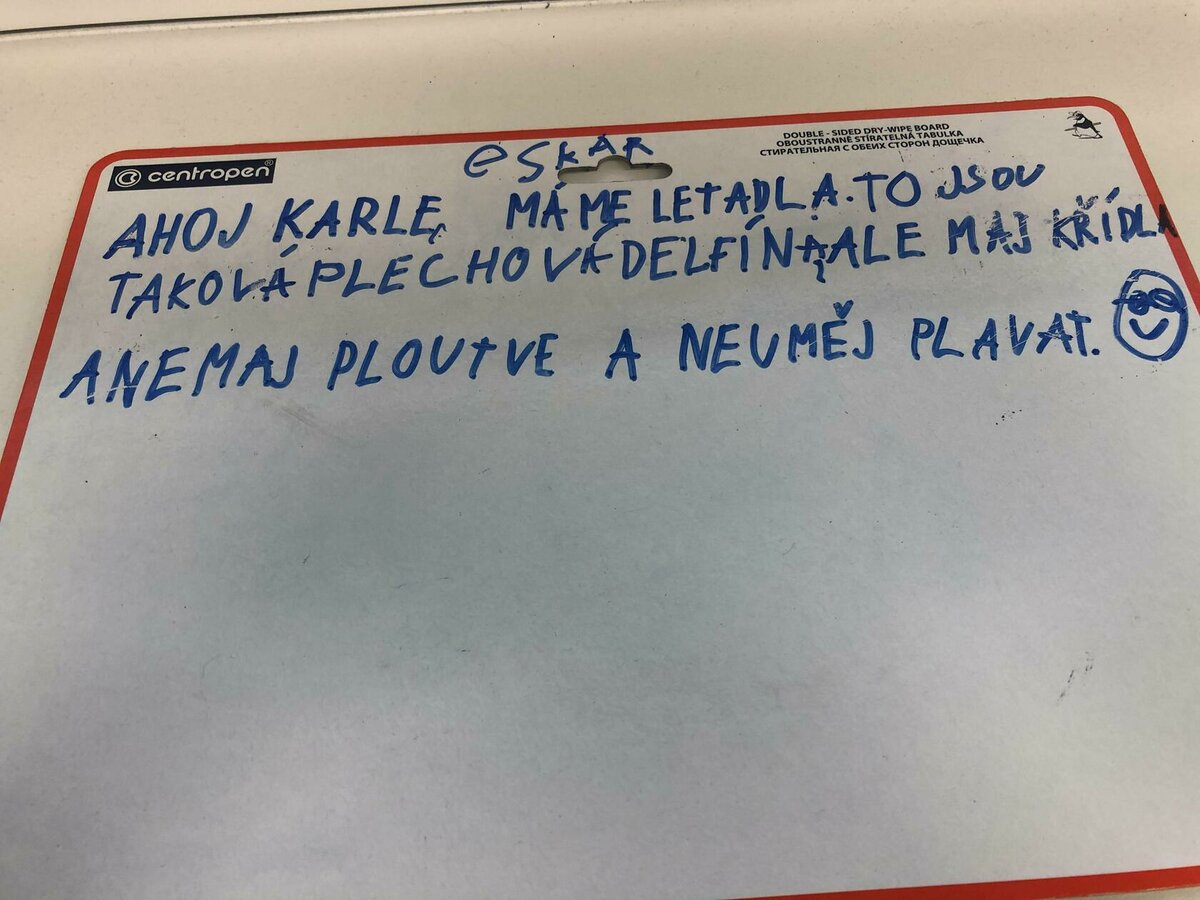 centropen®
DOUBLE - SIDED DRY-WIPE BOARD
OBOUSTRANNĚ STÍRATELNÁ TABULKA
СТИРАТЕЛЬНАЯ С ОБЕИХ СТОРОН ДОЩЕЧКА
eSKAR
AHOJ KARLE, MÁME LETADLA. TO JSOU
TAKOVÁ PLECHOVÁ DELFÍNA, ALE MAJ KŘÍDLA
A NEMAJ PLOUTVE A NEUMĚJ PLAVAT.